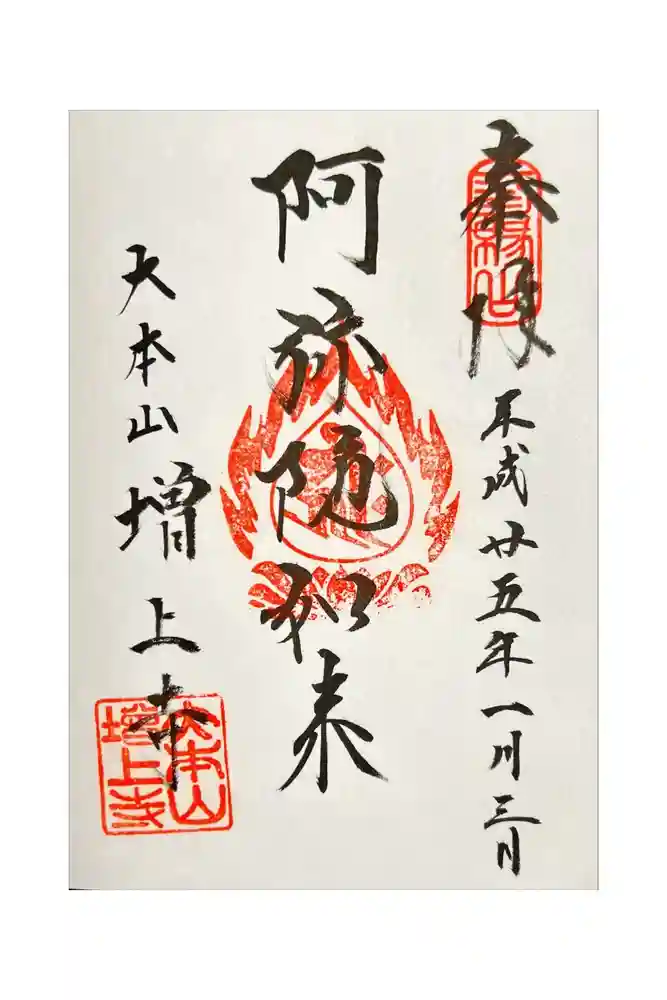 奉拝
平成廿五年一月三日
阿弥陀如来
大本山増上寺
大本山
增上寺